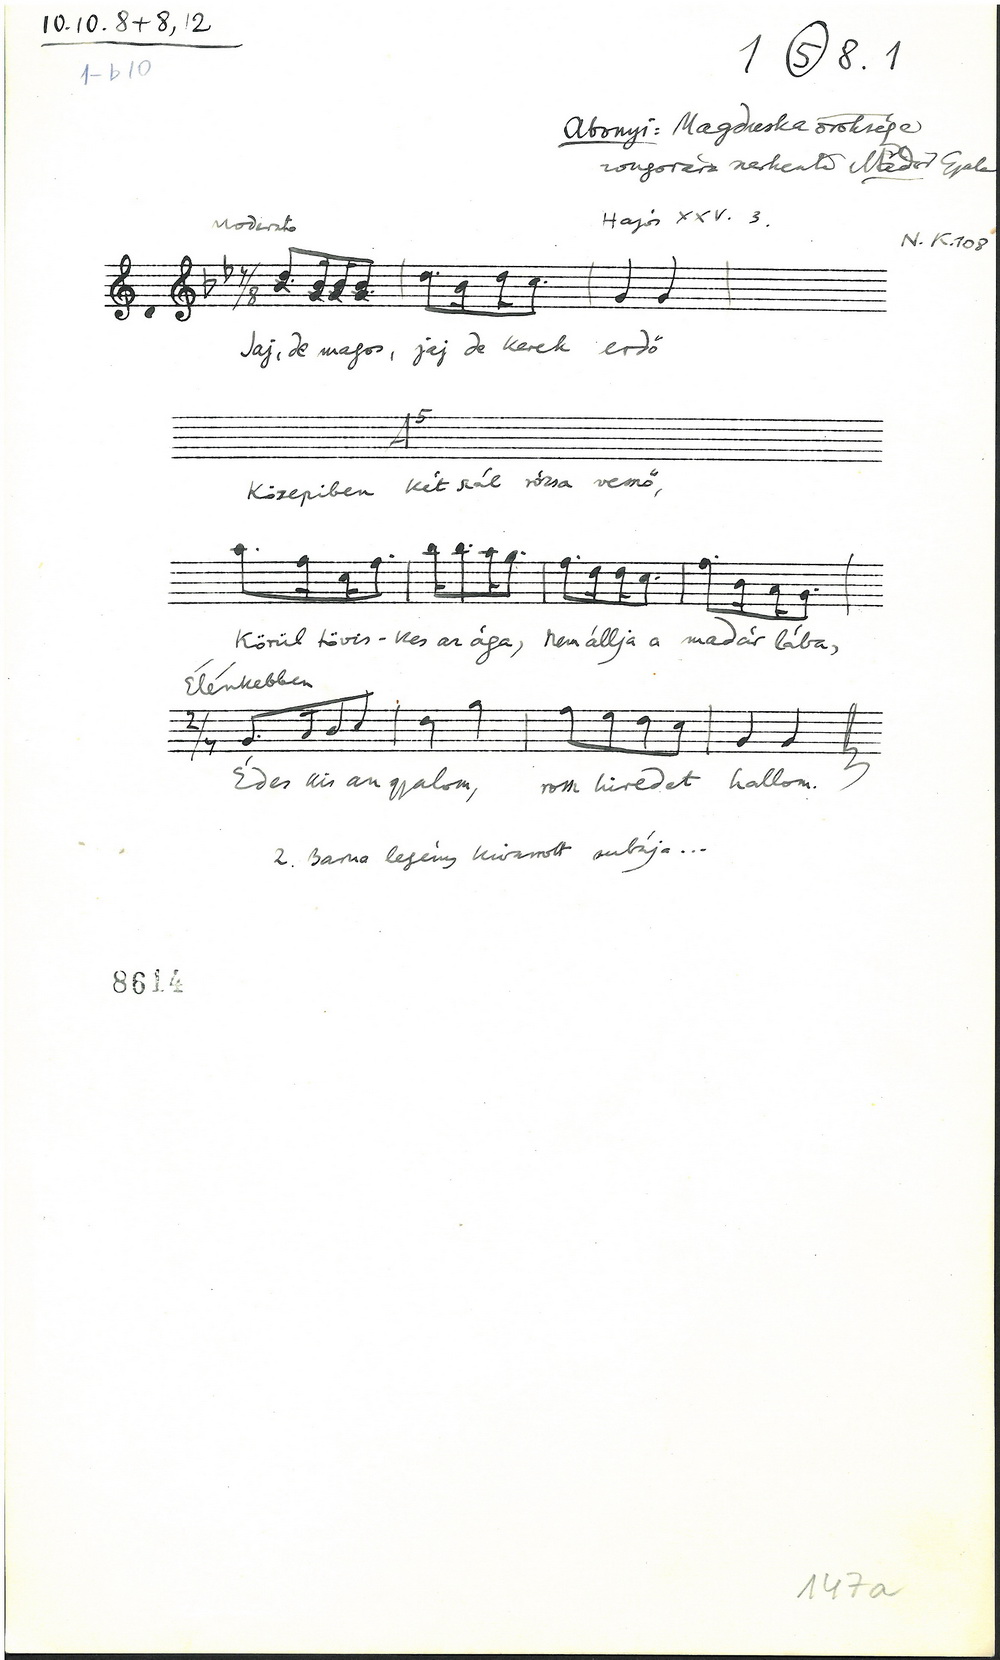 10.10. 8+8, 12
1-b10
1 5 8. 1
Abonyi: Magduska öröksége
zongorára Mádor Gyula
Hajós XXV. 3.
N. K. 108
Moderato
7/8
Jaj, de magos, jaj de kerek erdő
A5
Közepiben két szál rózsa vessző,
Körül tövis-kes az ága, Nem állja a madár lába,
Élénkebben
2/4
Édes kis angyalom, rossz hiredet hallom.
2. Barna legény kivarrott subája...
8614
147a